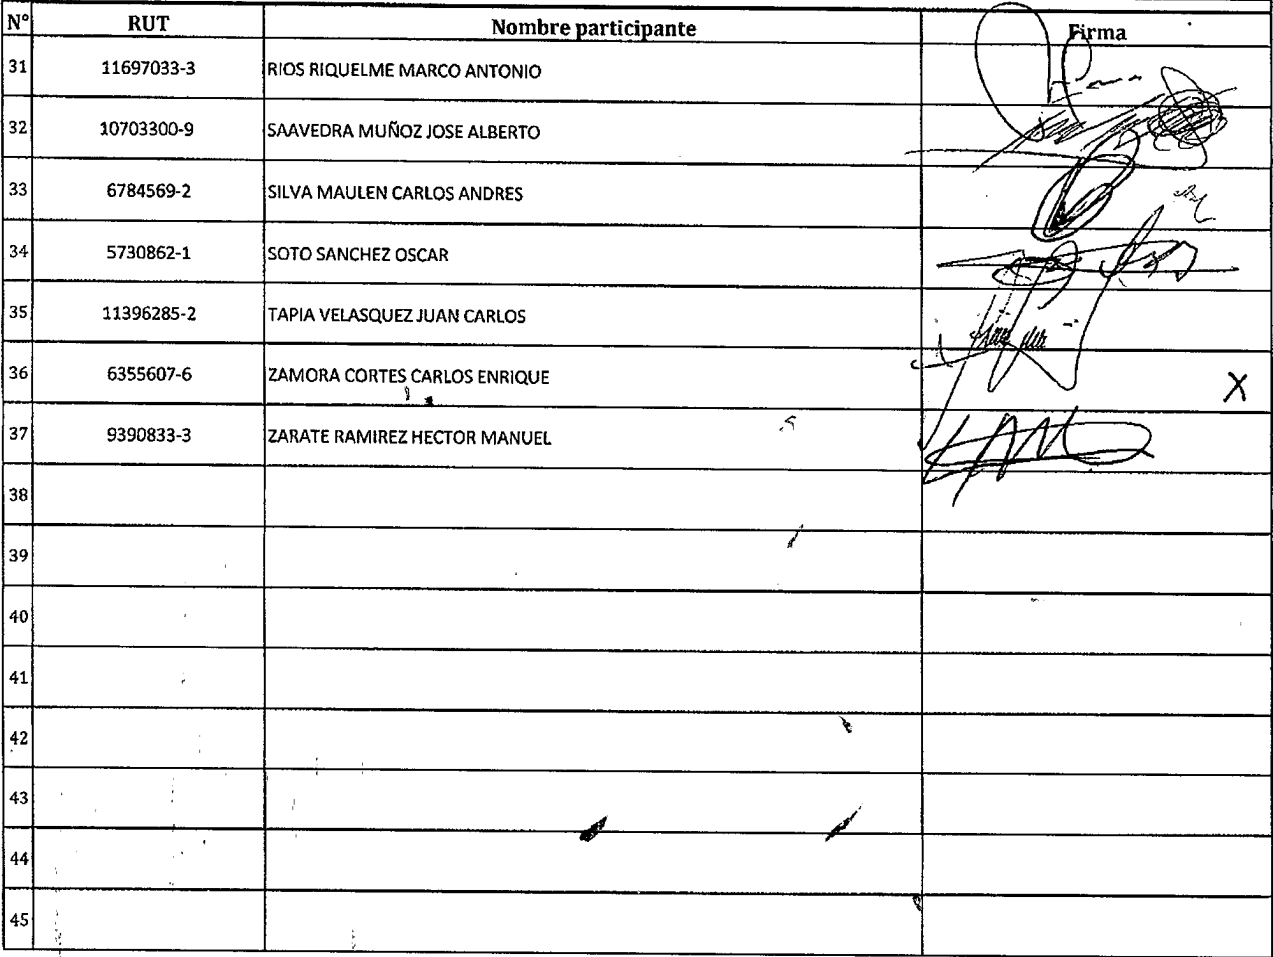 N° RUT Nombre participante Firma
31 11697033-3 RIOS RIQUELME MARCO ANTONIO
32 10703300-9 SAAVEDRA MUÑOZ JOSE ALBERTO
33 6784569-2 SILVA MAULEN CARLOS ANDRES
34 5730862-1 SOTO SANCHEZ OSCAR
35 11396285-2 TAPIA VELASQUEZ JUAN CARLOS
36 6355607-6 ZAMORA CORTES CARLOS ENRIQUE X
37 9390833-3 ZARATE RAMIREZ HECTOR MANUEL
38
39
40
41
42
43
44
45